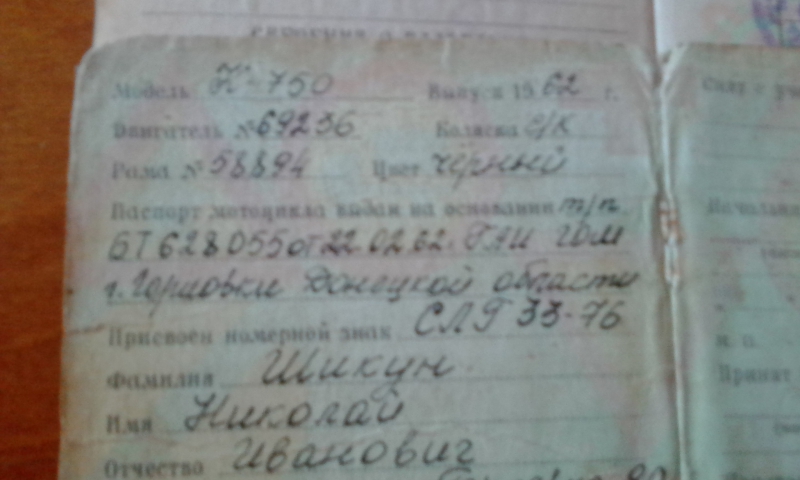 Модель К-750 Выпуск 1962 г.
Двигатель № 69236 Коляска с/к
Рама № 58894 Цвет черный
Паспорт мотоцикла выдан на основании т/п
БТ 628055 от 22.02.62. ГАИ ГОМ
г. Горловки Донецкой области
Присвоен номерной знак СЛГ 33-76
Фамилия Шикун
Имя Николай
Отчество Иванович
Снят с
Начальник
М. П.
Принят